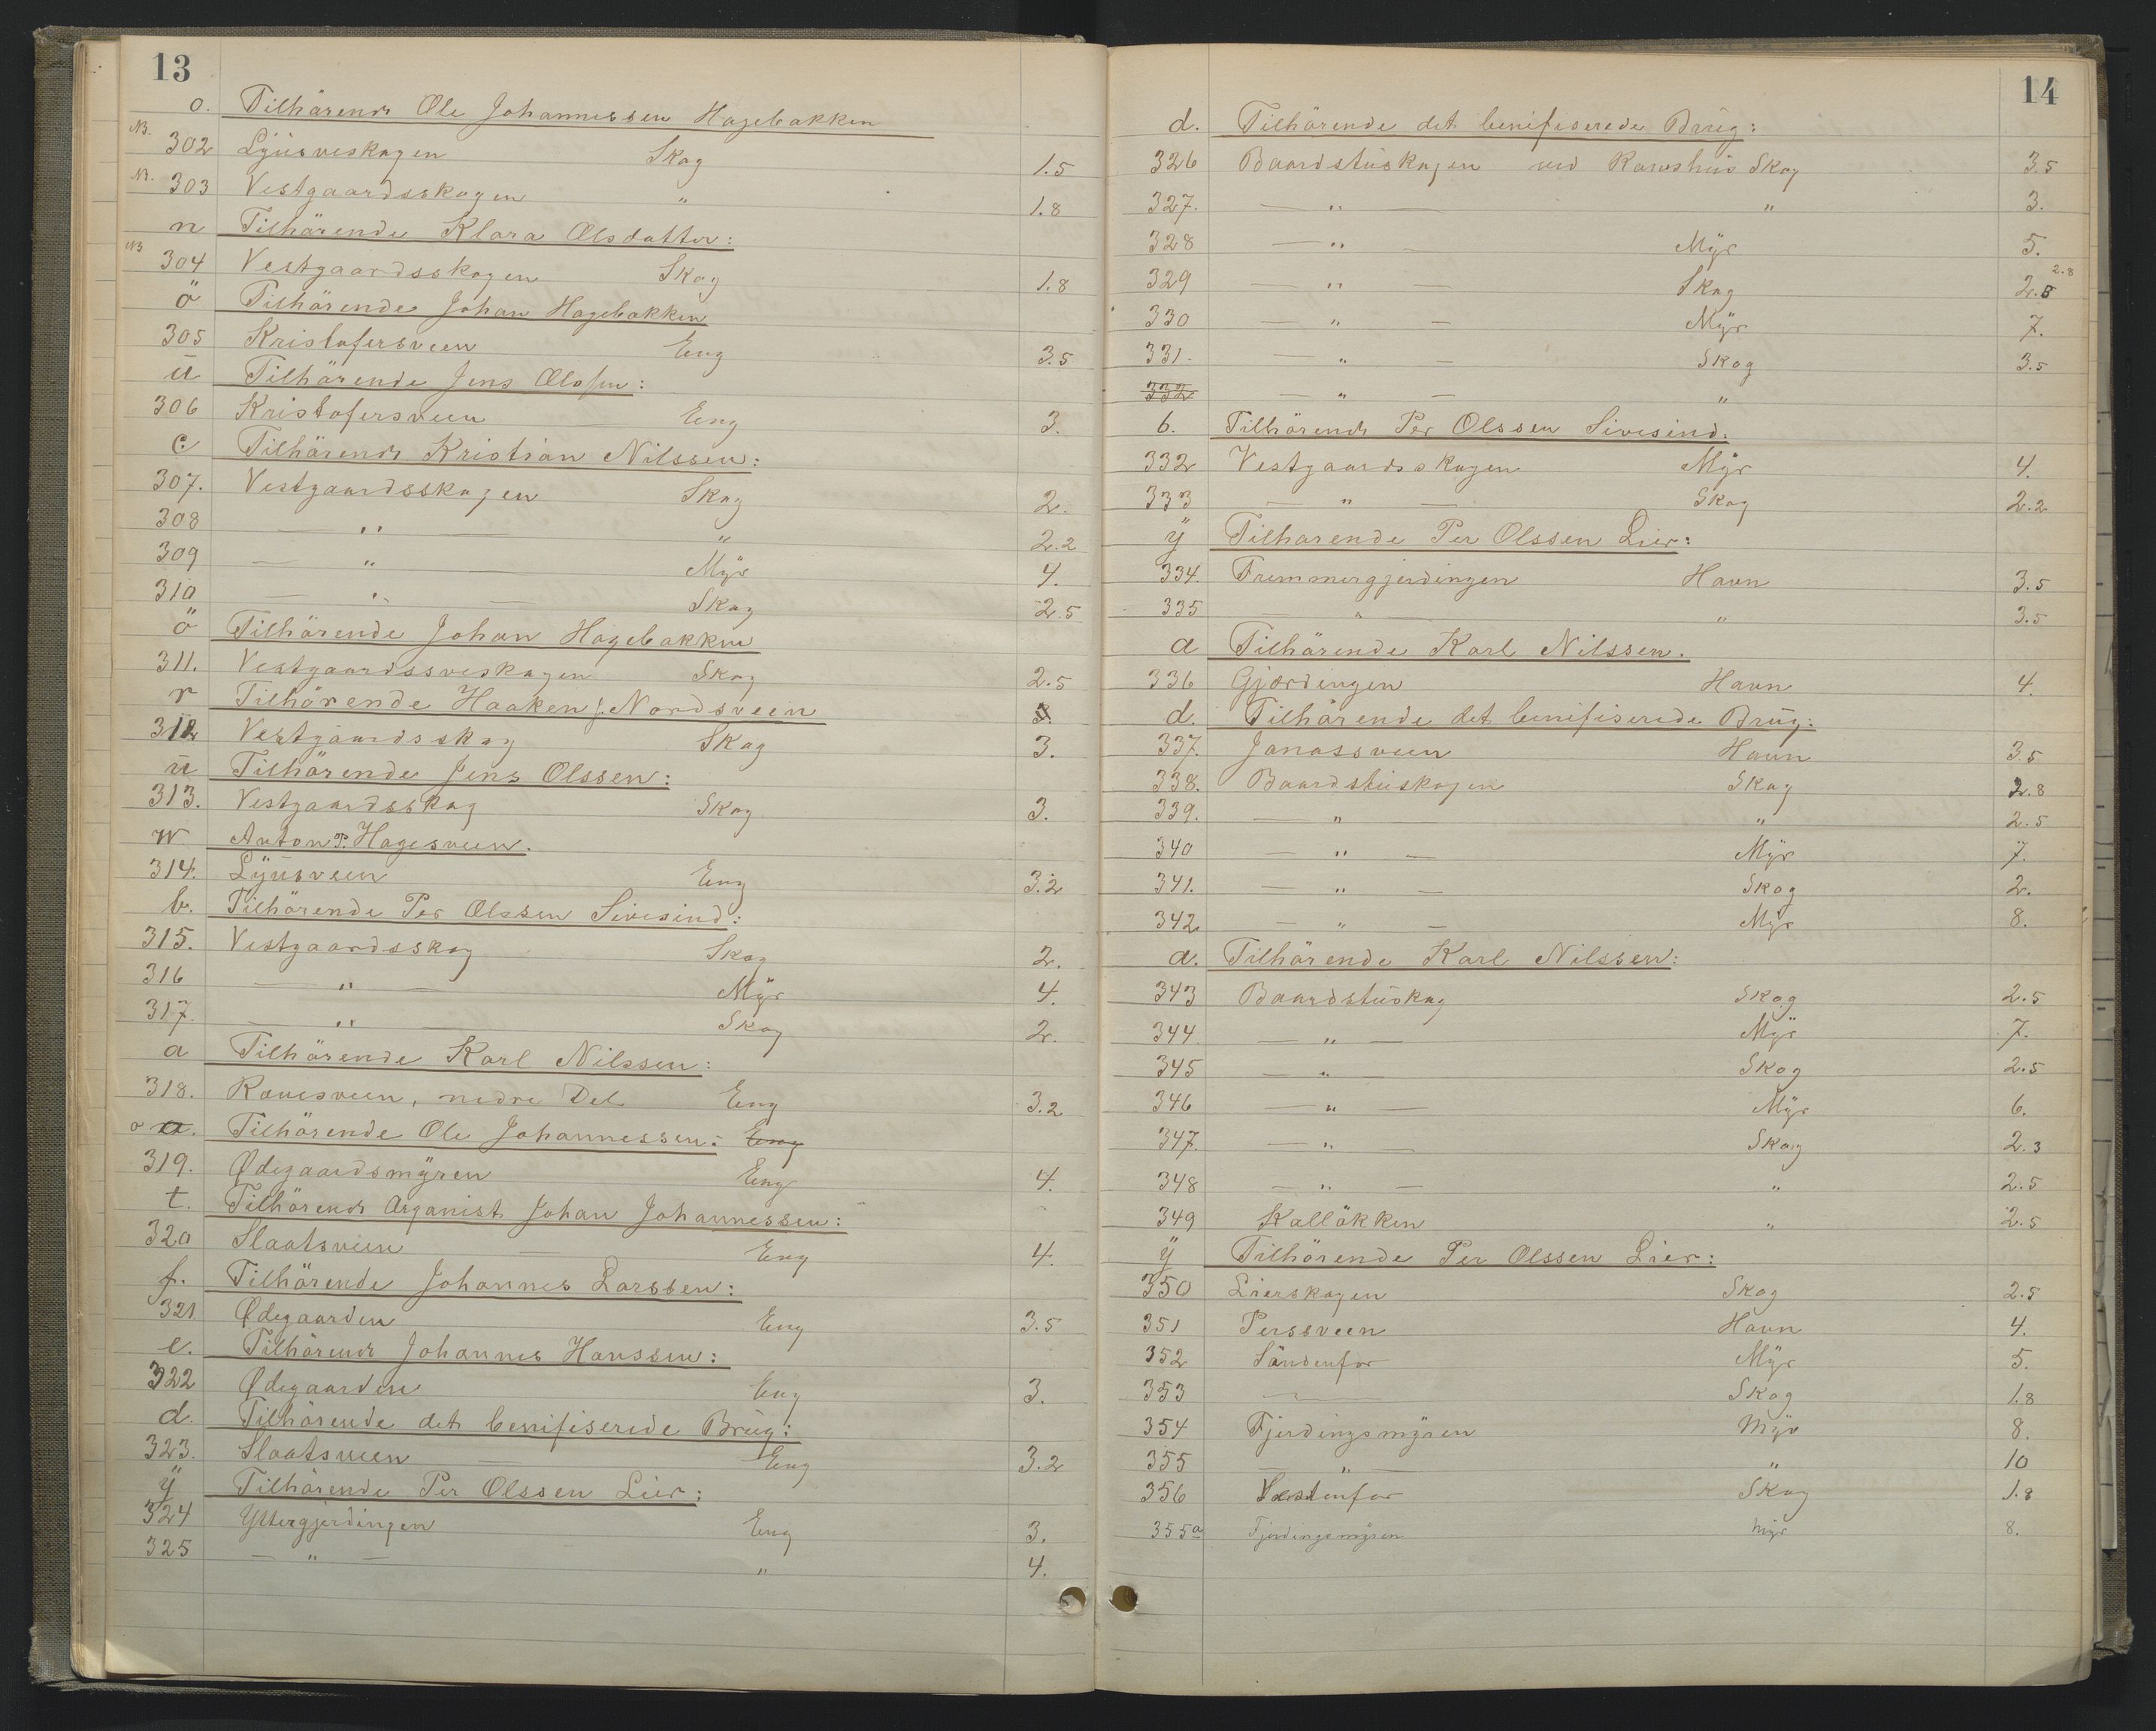 13
o. Tilhörende Ole Johannessen Hagebakken
NB. 302 Ljüsveskogen Skog 1.5
NB. 303 Vestgaardsskogen " 1.8
n Tilhörende Klara Olsdatter:
NB 304 Vestgaardsskogen Skog 1.8
ö Tilhörende Johan Hagebakken
305 Kristofersveen Eng 3.5
ü Tilhörende Jens Olssen:
306 Kristofersveen Eng 3.
c Tilhörende Kristian Nilssen:
307. Vestgaardsskogen Skog 2.
308 — " — " 2.2
309 — " — Mÿr 4.
310 — " — Skog 2.5
ö Tilhörende Johan Hagebakken
311. Vestgaardssveskogen Skog 2.5
r Tilhörende Haaken J. Nordsveen
312 Vestgaardsskog Skog 3.
ü Tilhörende Jens Olssen:
313. Vestgaardsskog Skog 3.
w Anton P. Hagesveen.
314. Lÿüsveen Eng 3.2
b. Tilhörende Per Olssen Sivesind:
315. Vestgaardsskog Skog 2.
316 — " — Mÿr 4.
317. — " — Skog 2.
a Tilhörende Karl Nilssen:
318. Rovesveen, nedre Del Eng 3.2
o a. Tilhörende Ole Johannessen: Eng
319. Ødegaardsmÿren Eng 4.
t. Tilhörende Organist Johan Johannessen:
320 Slaatsveen — Eng 4.
f. Tilhörende Johannes Larssen:
321 Ødegaarden Eng 3.5
e. Tilhörende Johannes Hanssen:
322 Ødegaarden Eng 3.
d. Tilhörende det benifiserede Brüg:
323. Slaatsveen — Eng 3.2
ÿ Tilhörende Per Olssen Lier:
324 Yttergjerdingen Eng 3.
325 — " — " 4.
14
d. Tilhörende det benifiserede Brüg:
326 Baardstuskogen ved Skog 3.5
327. — " — " 3.
328 — " — Mÿr 5.
329 — " — Skog 2.5 2.8
330 — " — Mÿr 7.
331. — " — Skog 3.5
332 — " — "
b. Tilhörende Per Olssen Sivesind:
332 Vestgaardsskogen Mÿr 4.
333 — " — Skog 2.2
ÿ Tilhörende Per Olssen Lier:
334. Fremmergjerdingen Havn 3.5
335 — " — " 3.5
a Tilhörende Karl Nilssen.
336 Gjærdingen Havn 4.
d. Tilhörende det benifiserede Brüg:
337. Jonassveen Havn 3.5
338. Baardstüskogen Skog 2.8
339. — " — " 2.5
340 — " — Mÿr 7.
341. — " — Skog 2.
342. — " — Mÿr 8.
a. Tilhörende Karl Nilssen:
343 Baardstüskog Skog 2.5
344. — " — Mÿr 7.
345 — " — Skog 2.5
346 — " — Mÿr 6.
347. — " — Skog 2.3
348 — " — " 2.5
349 Kallökken " 2.5
ÿ Tilhörende Per Olssen Lier:
350 Lierskogen Skog 2.5
351 Perssveen Havn 4.
352 Söndenfor Mÿr 5.
353 — Skog 1.8
354 Fjerdingsmÿren Mÿr 8.
355 — " — " 10
356 Vestenfor Skog 1.8
355a Fjerdingsmÿren Mÿr 8.